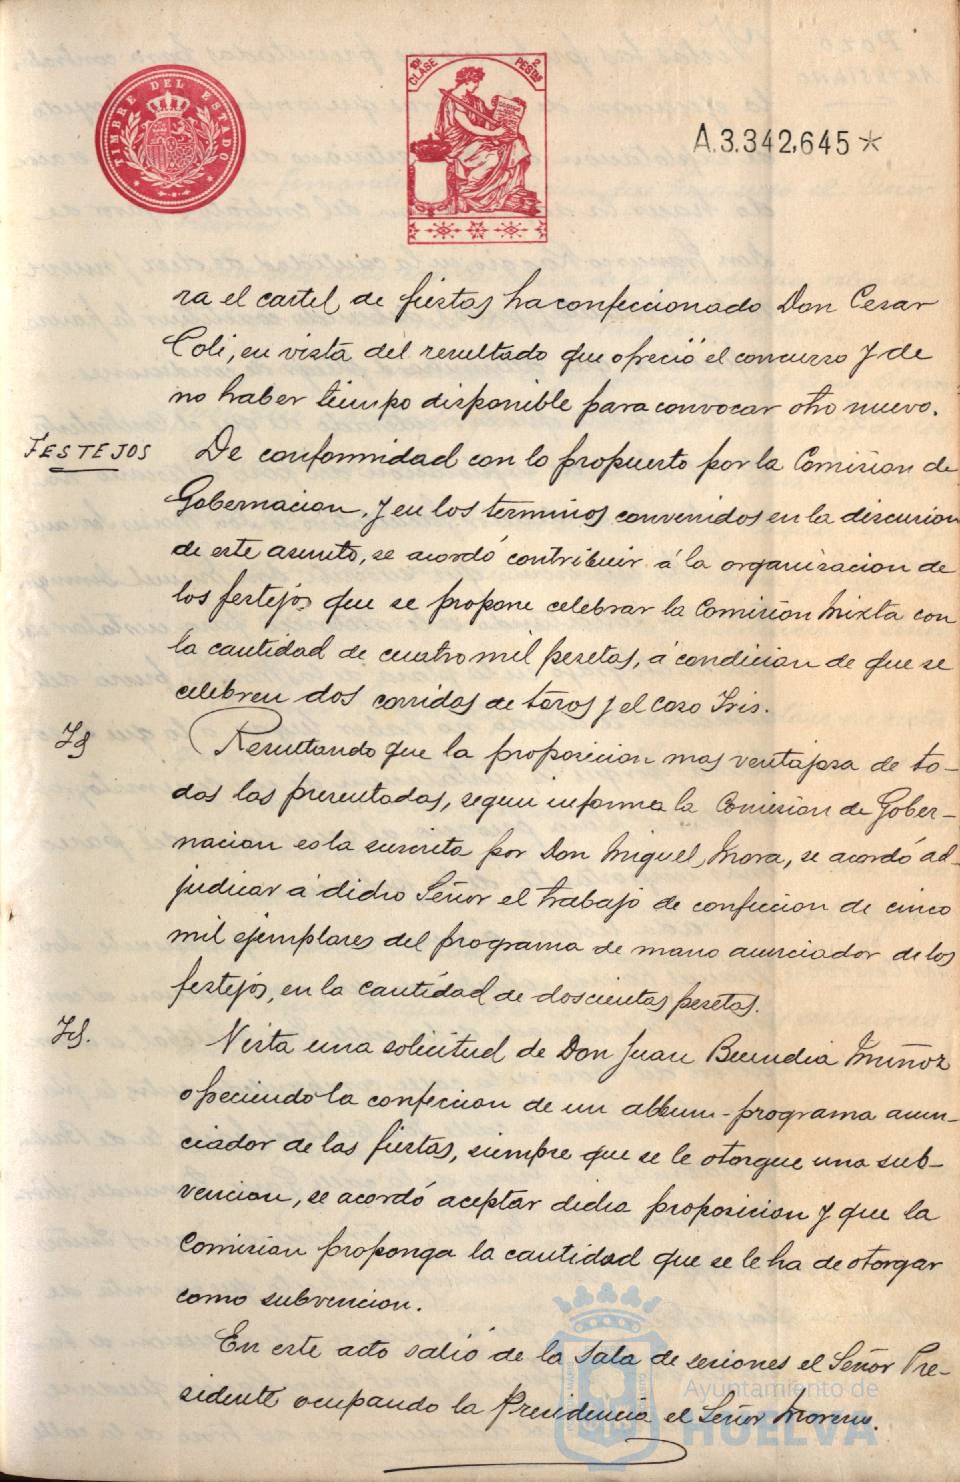 TIMBRE DEL ESTADO
1ª CLASE
2 PESTAS
A.3.342,645*
ra el cartel de fiestas ha confeccionado Don Cesar
Coli, en vista del resultado que ofreció el concurso y de
no haber tiempo disponible para convocar otro nuevo.
FESTEJOS
De conformidad con lo propuesto por la Comision de
Gobernacion, y en los terminos convenidos en la discusion
de este asunto, se acordó contribuir á la organizacion de
los festejos que se propone celebrar la Comisión Mixta con
la cantidad de cuatro mil pesetas, á condicion de que se
celebren dos corridas de toros y el Coso Iris.
Id
Resultando que la proposicion mas ventajosa de to-
das las presentadas, segun informa la Comision de Gober-
nacion es la suscrita por Don Miguel Mora, se acordó ad-
judicar á dicho Señor el trabajo de confeccion de cinco
mil ejemplares del programa de mano anunciador de los
festejos, en la cantidad de doscientas pesetas.
Id.
Vista una solicitud de Don Juan Buendia Muñoz
ofreciendo la confeccion de un album-programa anun-
ciador de las fiestas, siempre que se le otorgue una sub-
vencion, se acordó aceptar dicha proposicion y que la
Comision proponga la cantidad que se le ha de otorgar
como subvencion.
En este acto salió de la Sala de sesiones el Señor Pre-
sidente ocupando la Presidencia el Señor Moreno.
Ayuntamiento de
HUELVA